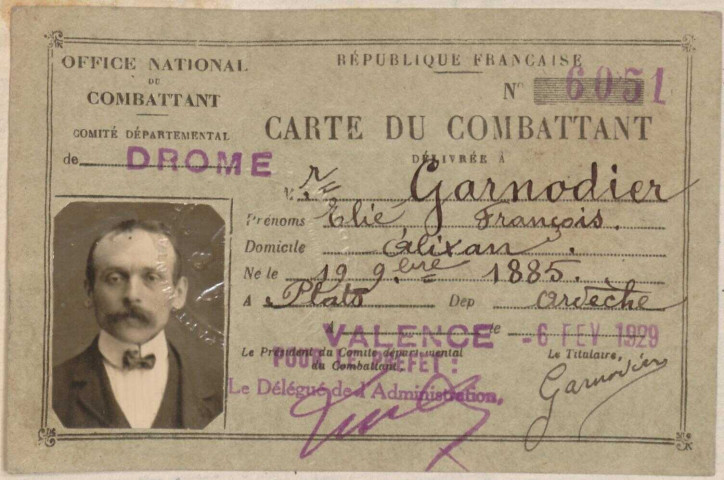 OFFICE NATIONAL
DU
COMBATTANT
COMITÉ DÉPARTEMENTAL
de DROME
RÉPUBLIQUE FRANÇAISE
N° 6051
CARTE DU COMBATTANT
DÉLIVRÉE À
M. r Garnodier
Prénoms Elie François.
Domicile Alixan.
Né le 19 9.bre 1885.
A Plats Dep Ardèche
A VALENCE le -6 FEV 1929
Le Président du Comité départemental
du Combattant
POUR LE PREFET :
Le Délégué de l'Administration,
Le Titulaire,
Garnodier